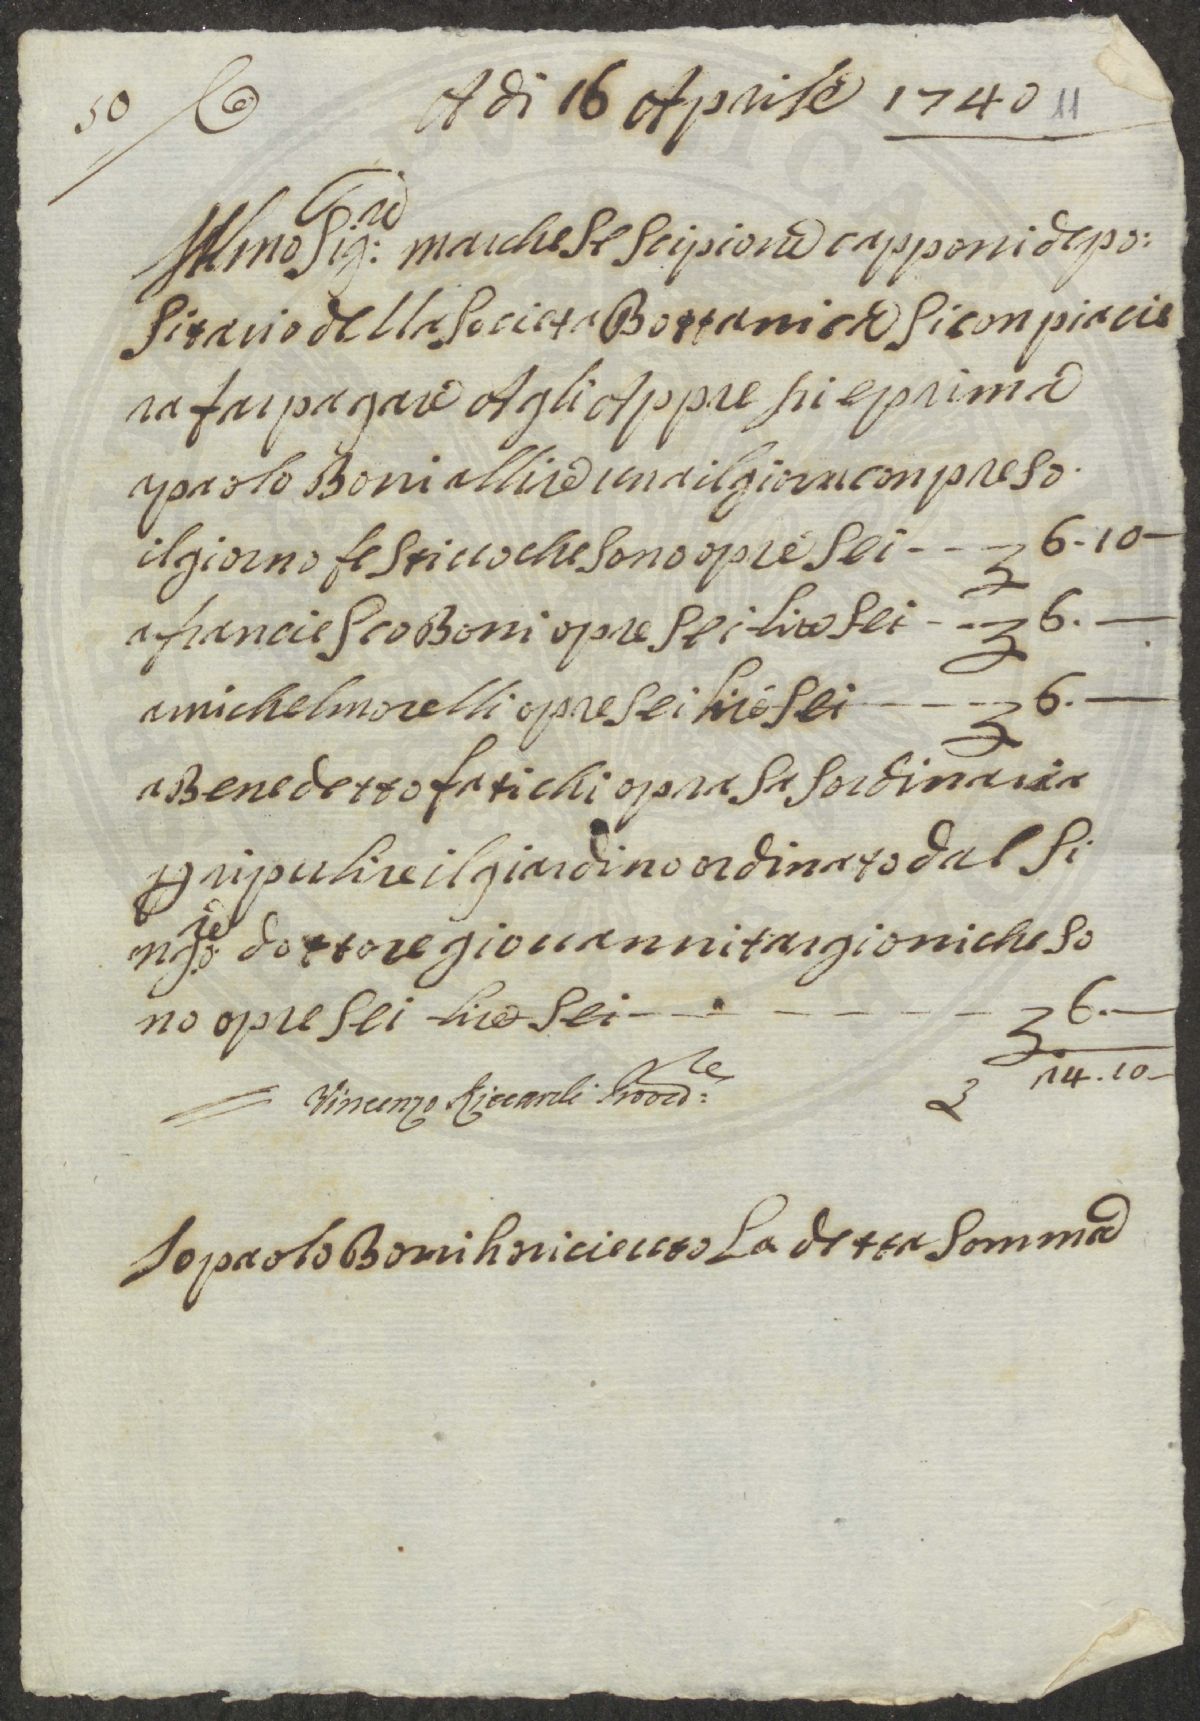 50 A di 16 Aprile 1740 11
Illmo Sig:re marchese Scipione capponi depo:
Sitario della Societa Bottanica Si conpiacie
ra far pagare Agli Appre si e prima
a paolo Boni a llire una il giorno conpreso
il giorno festiuo che sono opre Sei - - - £ 6.10 -
a franciesco Boni opre Sei lire Sei - - £ 6. —
a michel morelli opre Sei lire Sei - - - - £ 6. —
a Benedetto fatichi opra Sasordinaria
p ripulire il giardino ordinato dal Si
ngo:re dottore giouanni targioni che So
no opre Sei lire Sei - - - - - - - £ 6. —
= Vincenzo Riccardi Provd:re £ 24.10 -
Io paolo Boni ho riceuto La detta Somma